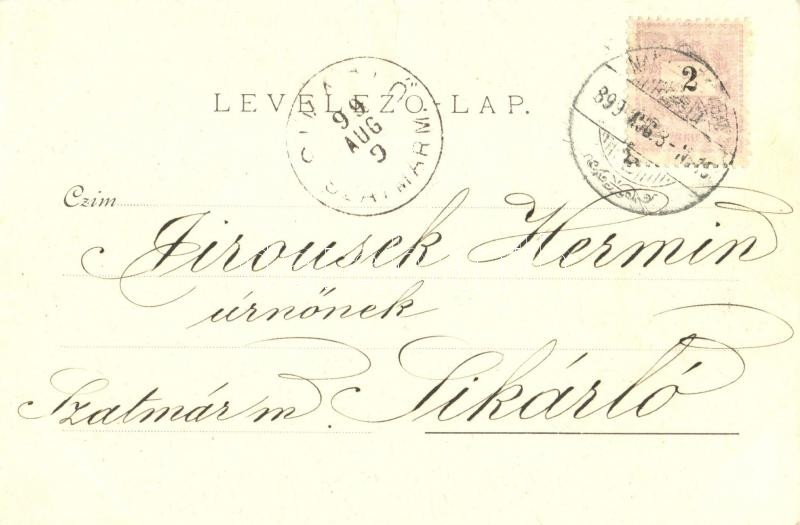 LEVELEZŐ-LAP.
2
99
AUG
9
899 AUG. 8
Czim
Jirousek Hermin
úrnőnek
Szatmár m. Sikárló